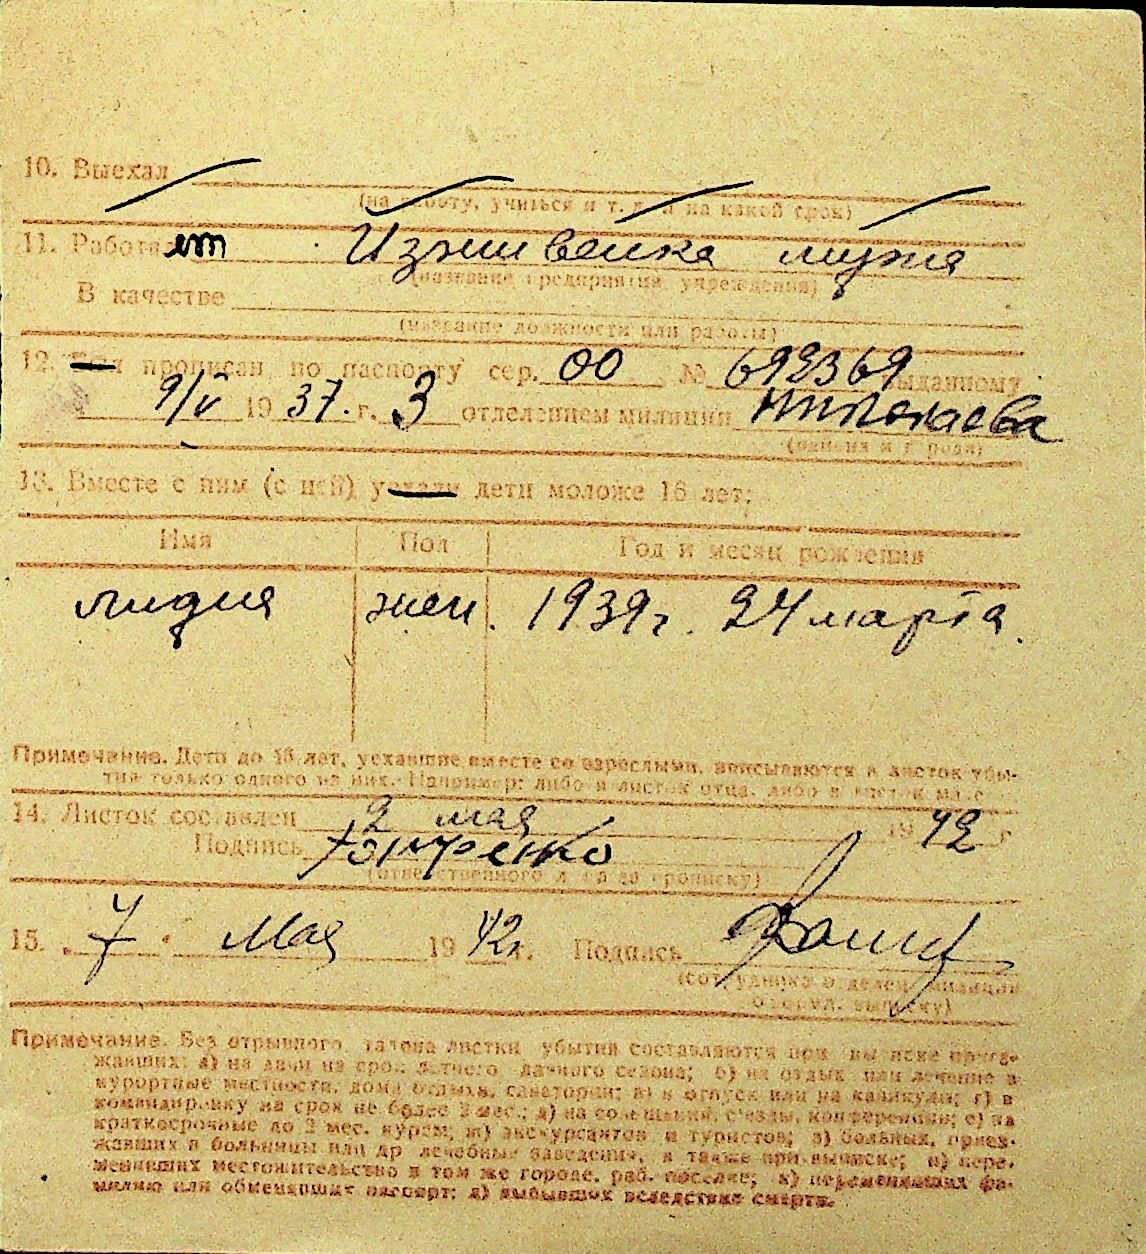 10. Выехал
(на работу, учиться и т. д. и на какой срок)
11. Работает Иждивенка мужа
(название предприятия, учреждения)
В качестве
(название должности или работы)
12. прописан по паспорту сер. 00 № 692369 выданному
9/V 1937 г. 3 отделением милиции Николаева
13. Вместе с ним (с ней) уехали дети моложе 16 лет;
Имя Пол Год и месяц рождения
лидия жен. 1939 г. 24 марта.
Примечание. Дети до 16 лет, уехавшие вместе со взрослыми, вписываются в листок убы-
тия только одного из них. Например: либо в листок отца, либо в листок
14. Листок составлен 2 мая 1942 г
Подпись
(ответственного за прописку)
15. 7 Мая 1942 г. Подпись
(сотрудника отделен. милиции
выписку)
Примечание. Без отрывного талона листки убытия составляются при выписке приез-
жавших: а) на дачи на срок летнего дачного сезона; б) на отдых или лечение в
курортные местности, дома отдыха, санатории; в) в отпуск или на каникулы; г) в
командировку на срок не более 2 мес.; д) на совещания, съезды, конференции; е) на
краткосрочные до 2 мес. курсы; ж) экскурсантов и туристов; з) больных, приез-
жавших в больницы или др лечебные заведения, а также при выписке; и) пере-
менивших местожительство в том же городе, раб. поселке; к) переменивших фа-
милию или обменявших паспорт; л) выбывших вследствие смерти.